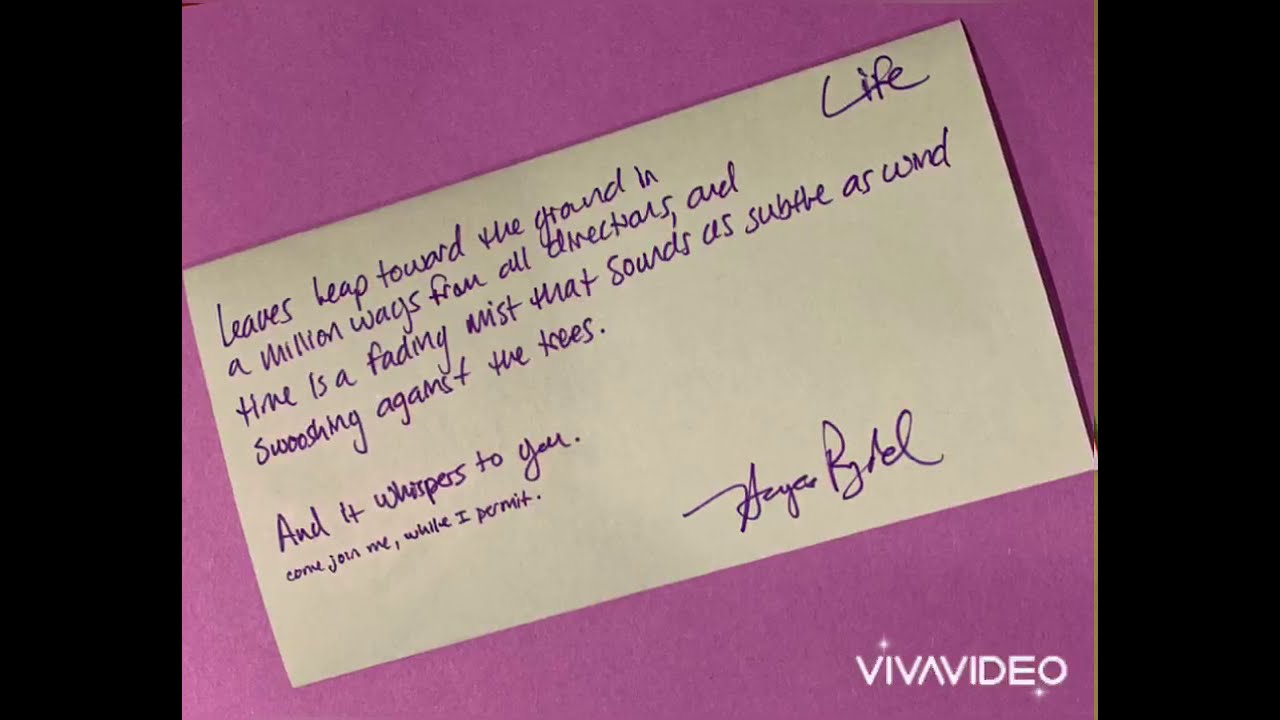 Life
Leaves leap toward the ground in
a million ways from all directions, and
time is a fading mist that sounds as subtle as wind
swooshing against the trees.
And it whispers to you.
come join me, while I permit.
VIVAVIDEO